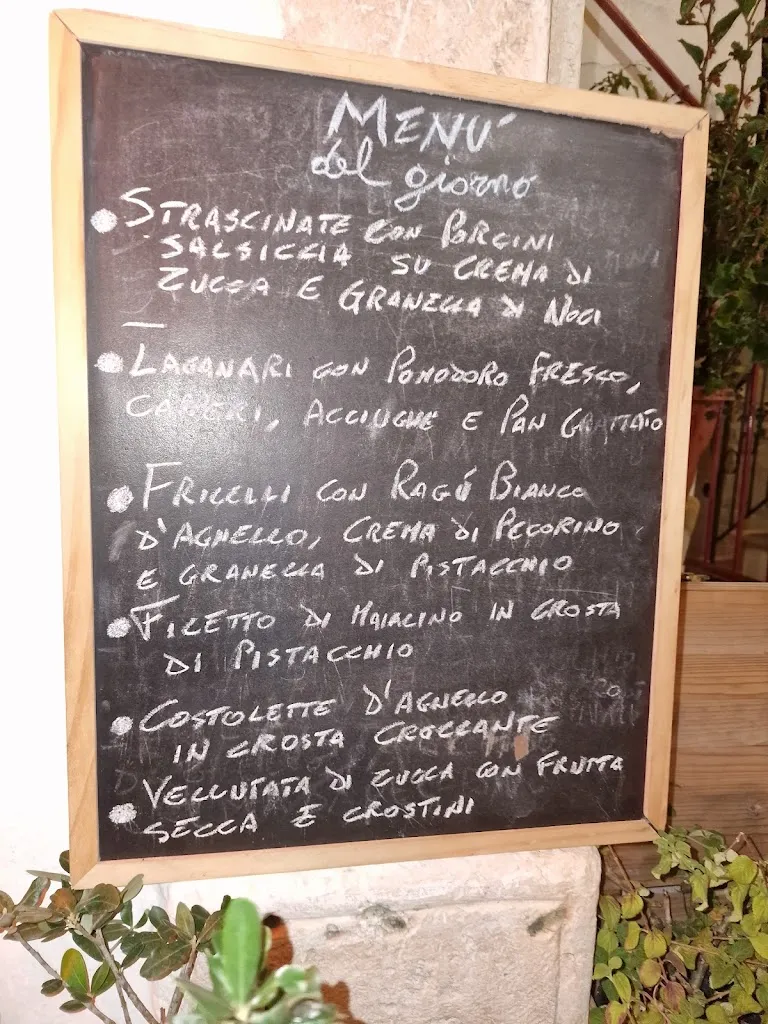 MENU'
del giorno
STRASCINATE CON PORCINI
SALSICCIA SU CREMA DI
ZUCCA E GRANELLA DI NOCI
LAGANARI CON POMODORO FRESCO,
CAPPERI, ACCIUGHE E PAN GRATTATO
FRICELLI CON RAGÚ BIANCO
D'AGNELLO, CREMA DI PECORINO
E GRANELLA DI PISTACCHIO
FILETTO DI MAIALINO IN CROSTA
DI PISTACCHIO
COSTOLETTE D'AGNELLO
IN CROSTA CROCCANTE
VELLUTATA DI ZUCCA CON FRUTTA
SECCA E CROSTINI